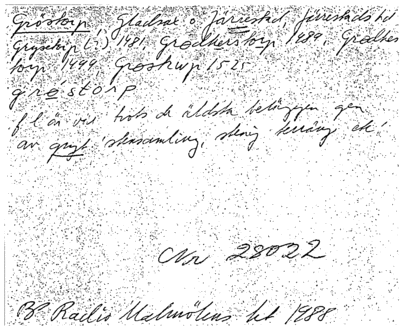 Gröstorp, Gladsax o Järrestad, Järrestads hd
Grysetiip (?) 1481, Grødherstorp 1489, Grødhes
torp 1499 Grostrwp 1525
gröstorp
f l är väl trots de äldsta beläggen gen
av gryt 'stensamling, stenig terräng' el
Nr 28022
Radio Malmöhus 1988